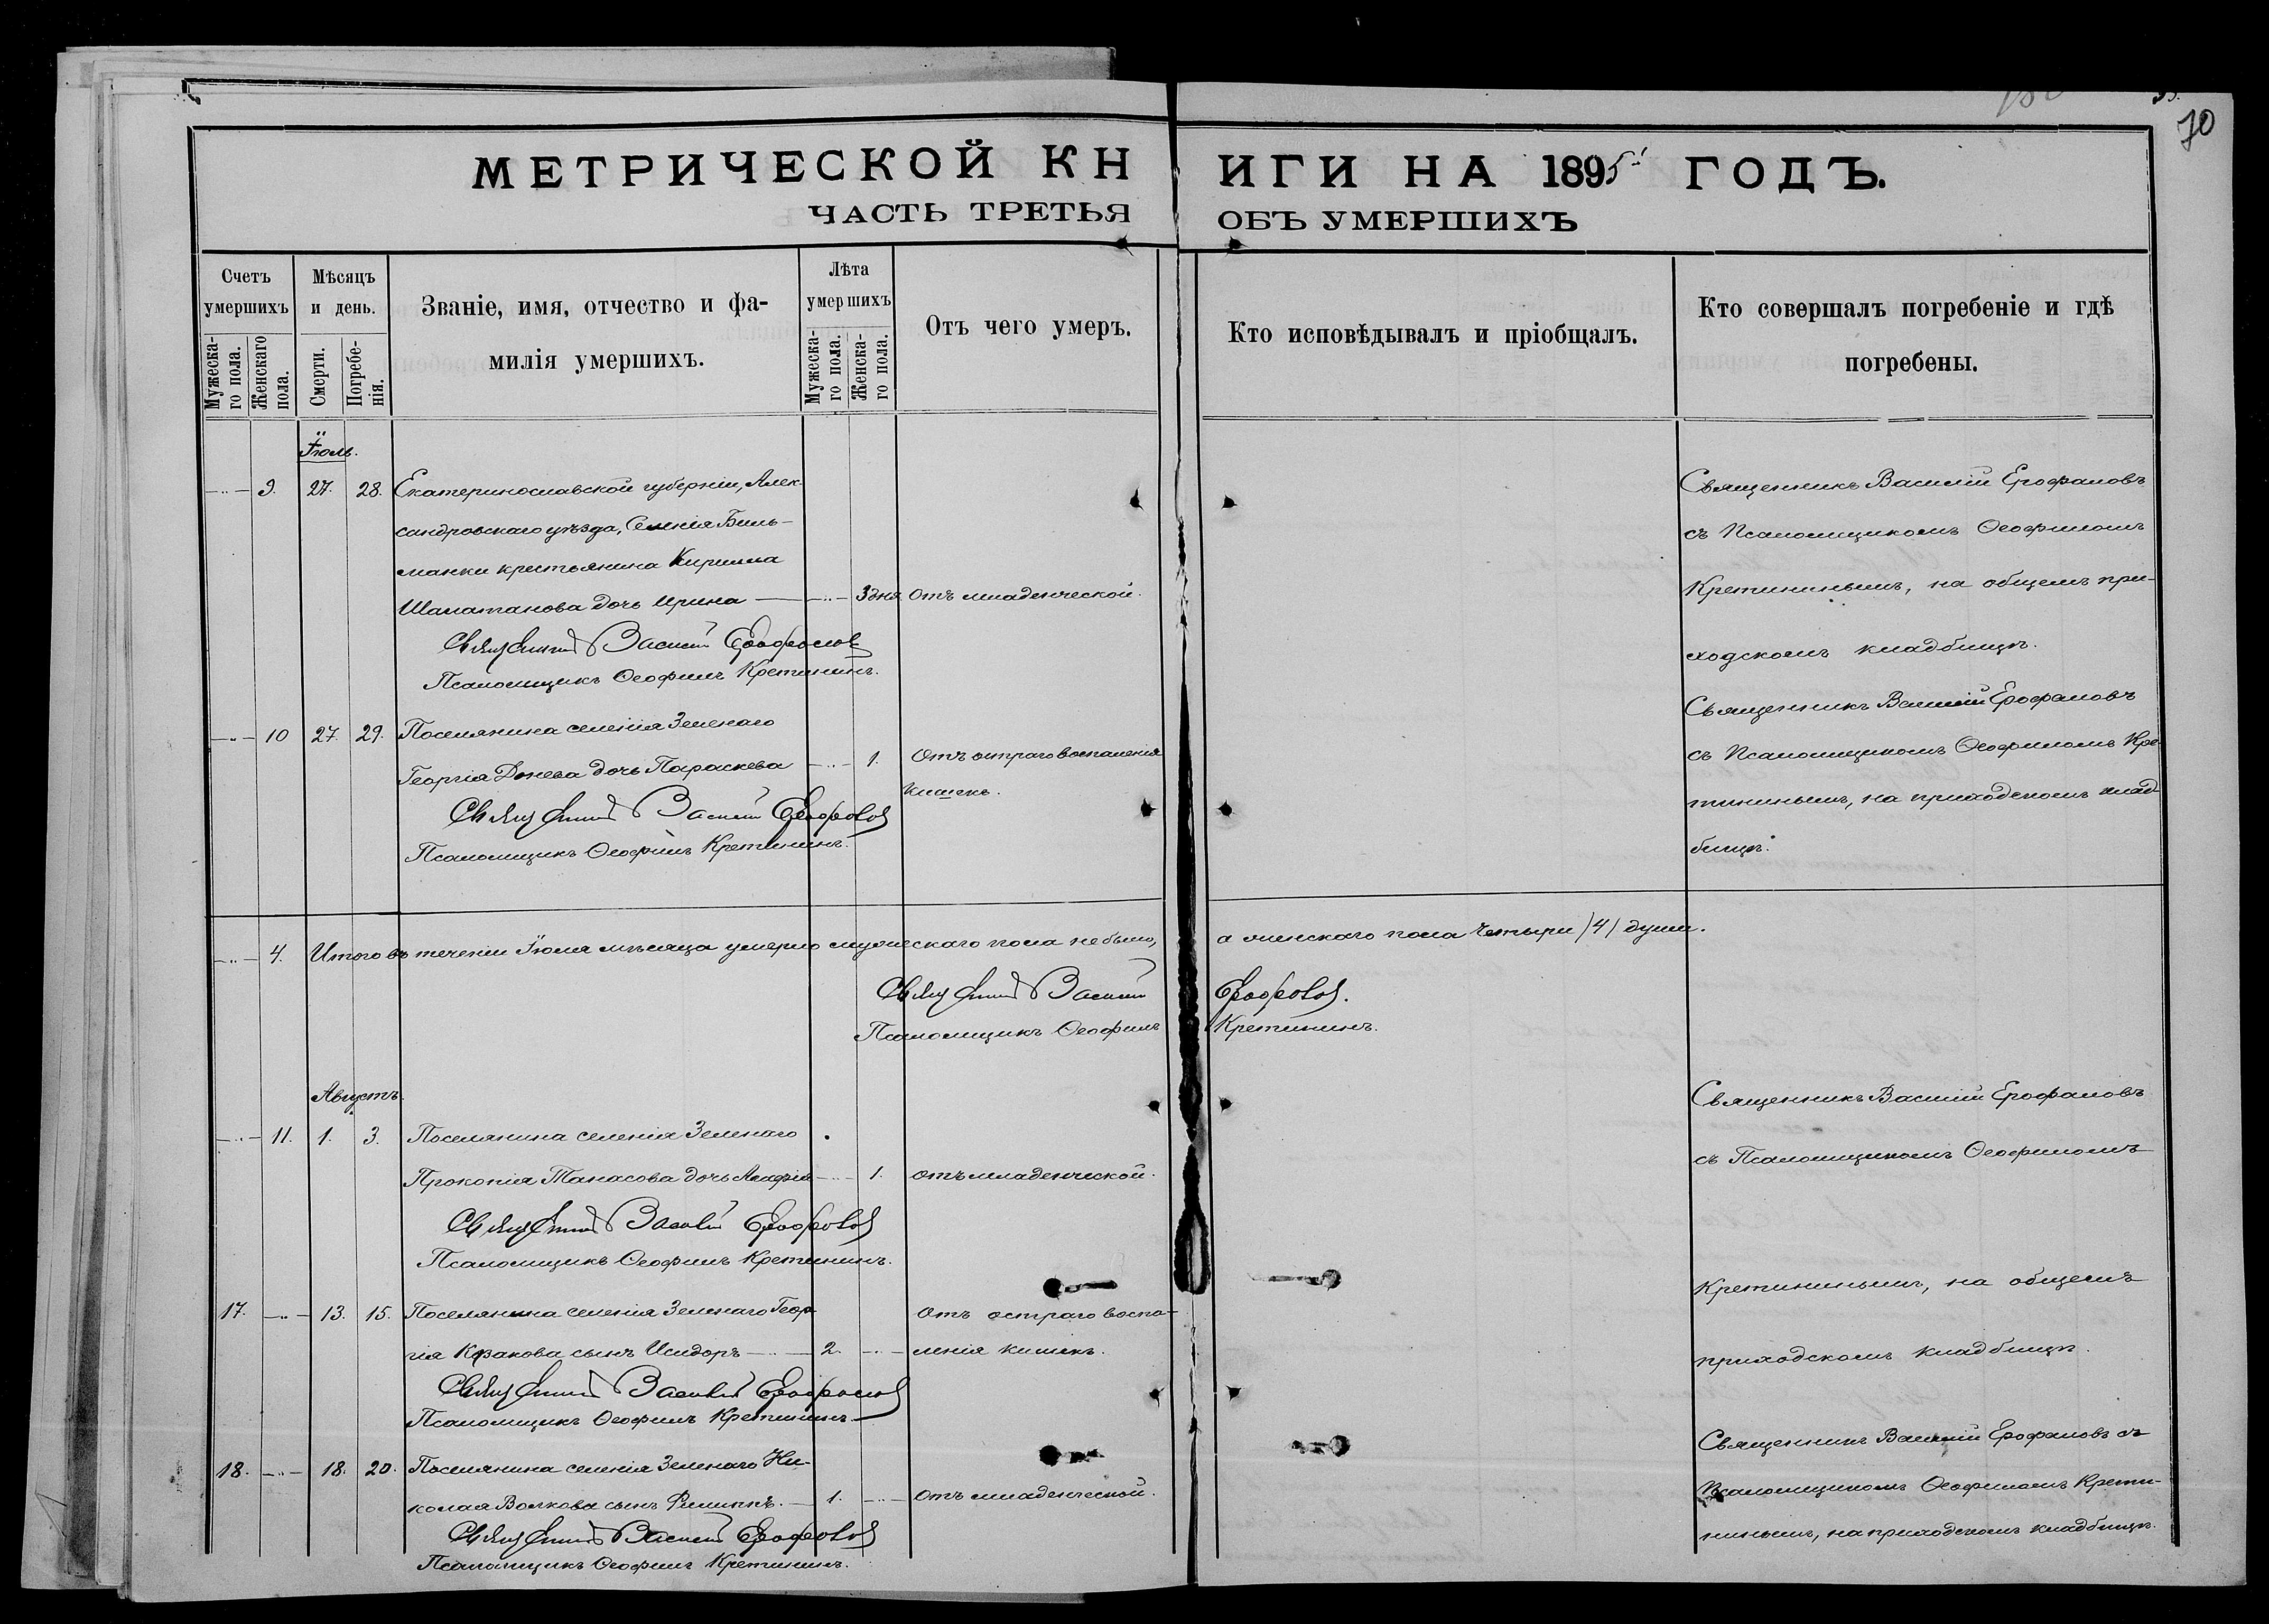 70
МЕТРИЧЕСКОЙ КН ИГИ НА 1895 ГОДЪ.
ЧАСТЬ ТРЕТЬЯ ОБЪ УМЕРШИХЪ
Счетъ умершихъ
Мужеска-
го пола.
Женскаго
пола.
Мѣсяцъ
и день.
Смерти.
Погребе-
нія.
Званіе, имя, отчество и фа-
милія умершихъ.
Лѣта
умершихъ
Мужеска-
го пола.
Женска-
го пола.
Отъ чего умеръ.
Кто исповѣдывалъ и пріобщалъ.
Кто совершалъ погребеніе и гдѣ
погребены.
Іюль.
9. 27. 28. Екатеринославской губерніи, Алек-
сандровскаго уѣзда, Селенія Биль-
манки крестьянина Кирилла
Шаматанова дочь Ирина 3 дня Отъ младенческой.
Священникъ Василій Ерофаловъ
Псаломщикъ Ѳеофилъ Кретининъ.
Священникъ Василій Ерофаловъ
съ Псаломщикомъ Ѳеофиломъ
Кретининымъ, на общемъ при-
ходскомъ кладбищѣ.
10 27. 29. Поселянина селенія Зеленаго
Георгія Донева дочь Параскева 1. Отъ остраго воспаленія
кишекъ.
Священникъ Василій
Псаломщикъ Ѳеофилъ Кретининъ.
Священникъ Василій Ерофаловъ
съ Псаломщикомъ Ѳеофиломъ Кре-
тининымъ, на приходскомъ клад-
бищѣ.
4. Итого въ теченіи Іюля мѣсяца умерло мужескаго пола не было, а женскаго пола четыре /4/ души.
Священникъ Василій
Псаломщикъ Ѳеофилъ Кретининъ.
Августъ.
11. 1. 3. Поселянина селенія Зеленаго
Прокопія Танасова дочь Агафія 1. отъ младенческой.
Священникъ Василій
Псаломщикъ Ѳеофилъ Кретининъ.
Священникъ Василій Ерофаловъ
съ Псаломщикомъ Ѳеофиломъ
Кретининымъ, на общемъ
приходскомъ кладбищѣ.
17. 13. 15. Поселянина селенія Зеленаго Геор-
гія Казакова сынъ Исидоръ 2. Отъ остраго воспа-
ленія кишекъ.
Священникъ Василій Ерофаловъ
Псаломщикъ Ѳеофилъ Кретининъ
18. 18. 20. Поселянина селенія Зеленаго Ни-
колая Волкова сынъ Филиппъ. 1. Отъ младенческой.
Священникъ Василій
Псаломщикъ Ѳеофилъ Кретининъ.
Священникъ Василій Ерофаловъ съ
Псаломщикомъ Ѳеофиломъ Крети-
нинымъ, на приходскомъ кладбищѣ.